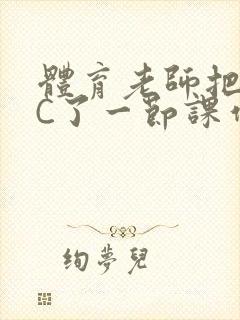 體育老師把
C了一節課作
絢夢兒